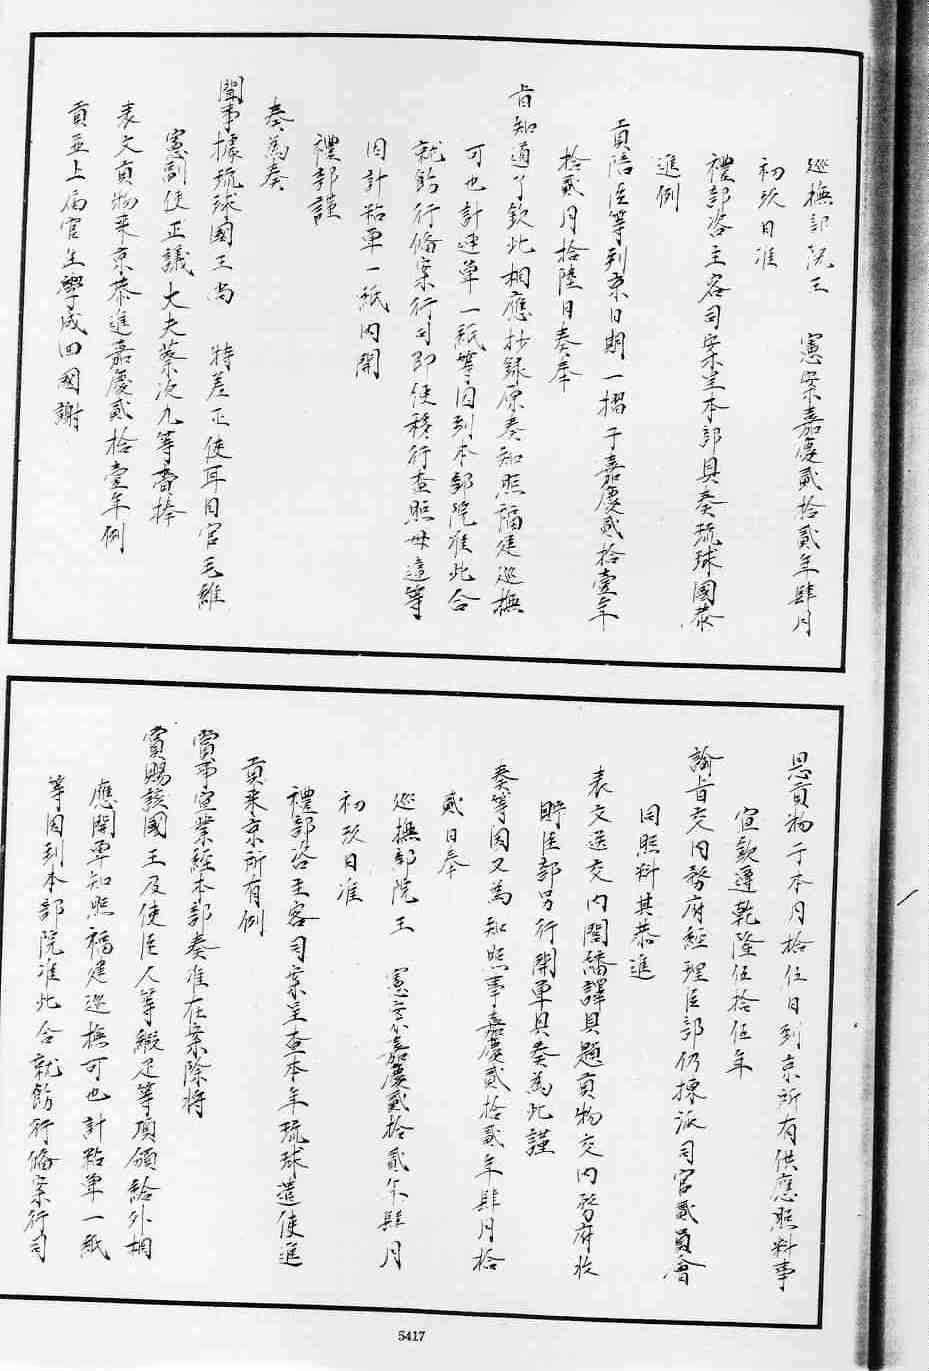 巡撫部院王　憲案嘉慶貳拾貳年肆月
初玖日准
禮部咨主客司案呈本部具奏琉球國恭
進例
貢陪臣等到京日期一摺于嘉慶貳拾壹年
拾貳月拾陸日奏奉
旨知道了欽此相應抄錄原奏知照福建巡撫
可也計連單一紙等因到本部院准此合
就飭行偹案行司即便移行查照毋違等
因計粘單一紙內開
禮部謹
奏為奏
聞事據琉球國王尚　特差正使耳目官毛維
憲副使正議大夫蔡次九等齎捧
表文貢物来京恭進嘉慶貳拾壹年例
貢並上屆官生學成回國謝
恩貢物于本月拾伍日到京所有供應照料事
宜欽遵乾隆伍拾伍年
諭旨交內務府經理臣部仍揀派司官貳員會
同照料其恭進
表文送交內閣繙譯具題貢物交內務府收
貯臣部另行開單具奏為此謹
奏等因又為知照事嘉慶貳拾貳年肆月拾
貳日奉
巡撫部院王　憲案嘉慶貳拾貳年肆月
初玖日准
禮部咨主客司案呈查本年琉球遣使進
貢来京所有例
賞事宜業經本部奏准在案除將
賞賜該國王及使臣人等緞疋等項頒給外相
應開單知照福建巡撫可也計粘單一紙
等因到本部院准此合就飭行偹案行司
5417